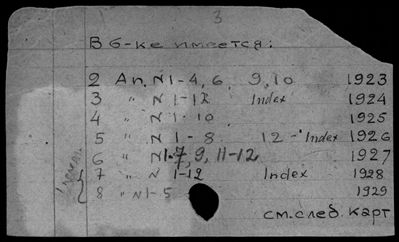 3
В б-ке имеется:
2 Ап. №1-4, 6, 9, 10 1923
3 " № 1-12 Index 1924
4 " № 1-10 1925
5 " № 1-8 12-Index 1926
6 " №1-7, 9, 11-12 1927
7 " № 1-12 Index 1928
8 " №1-5 1929
см. след. карт